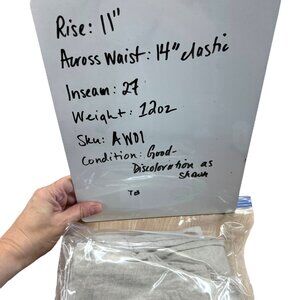 Rise: 11"
Across Waist: 14" elastic
Inseam: 27
Weight: 12oz
Sku: AW01
Condition: Good-
Discoloration as
shown